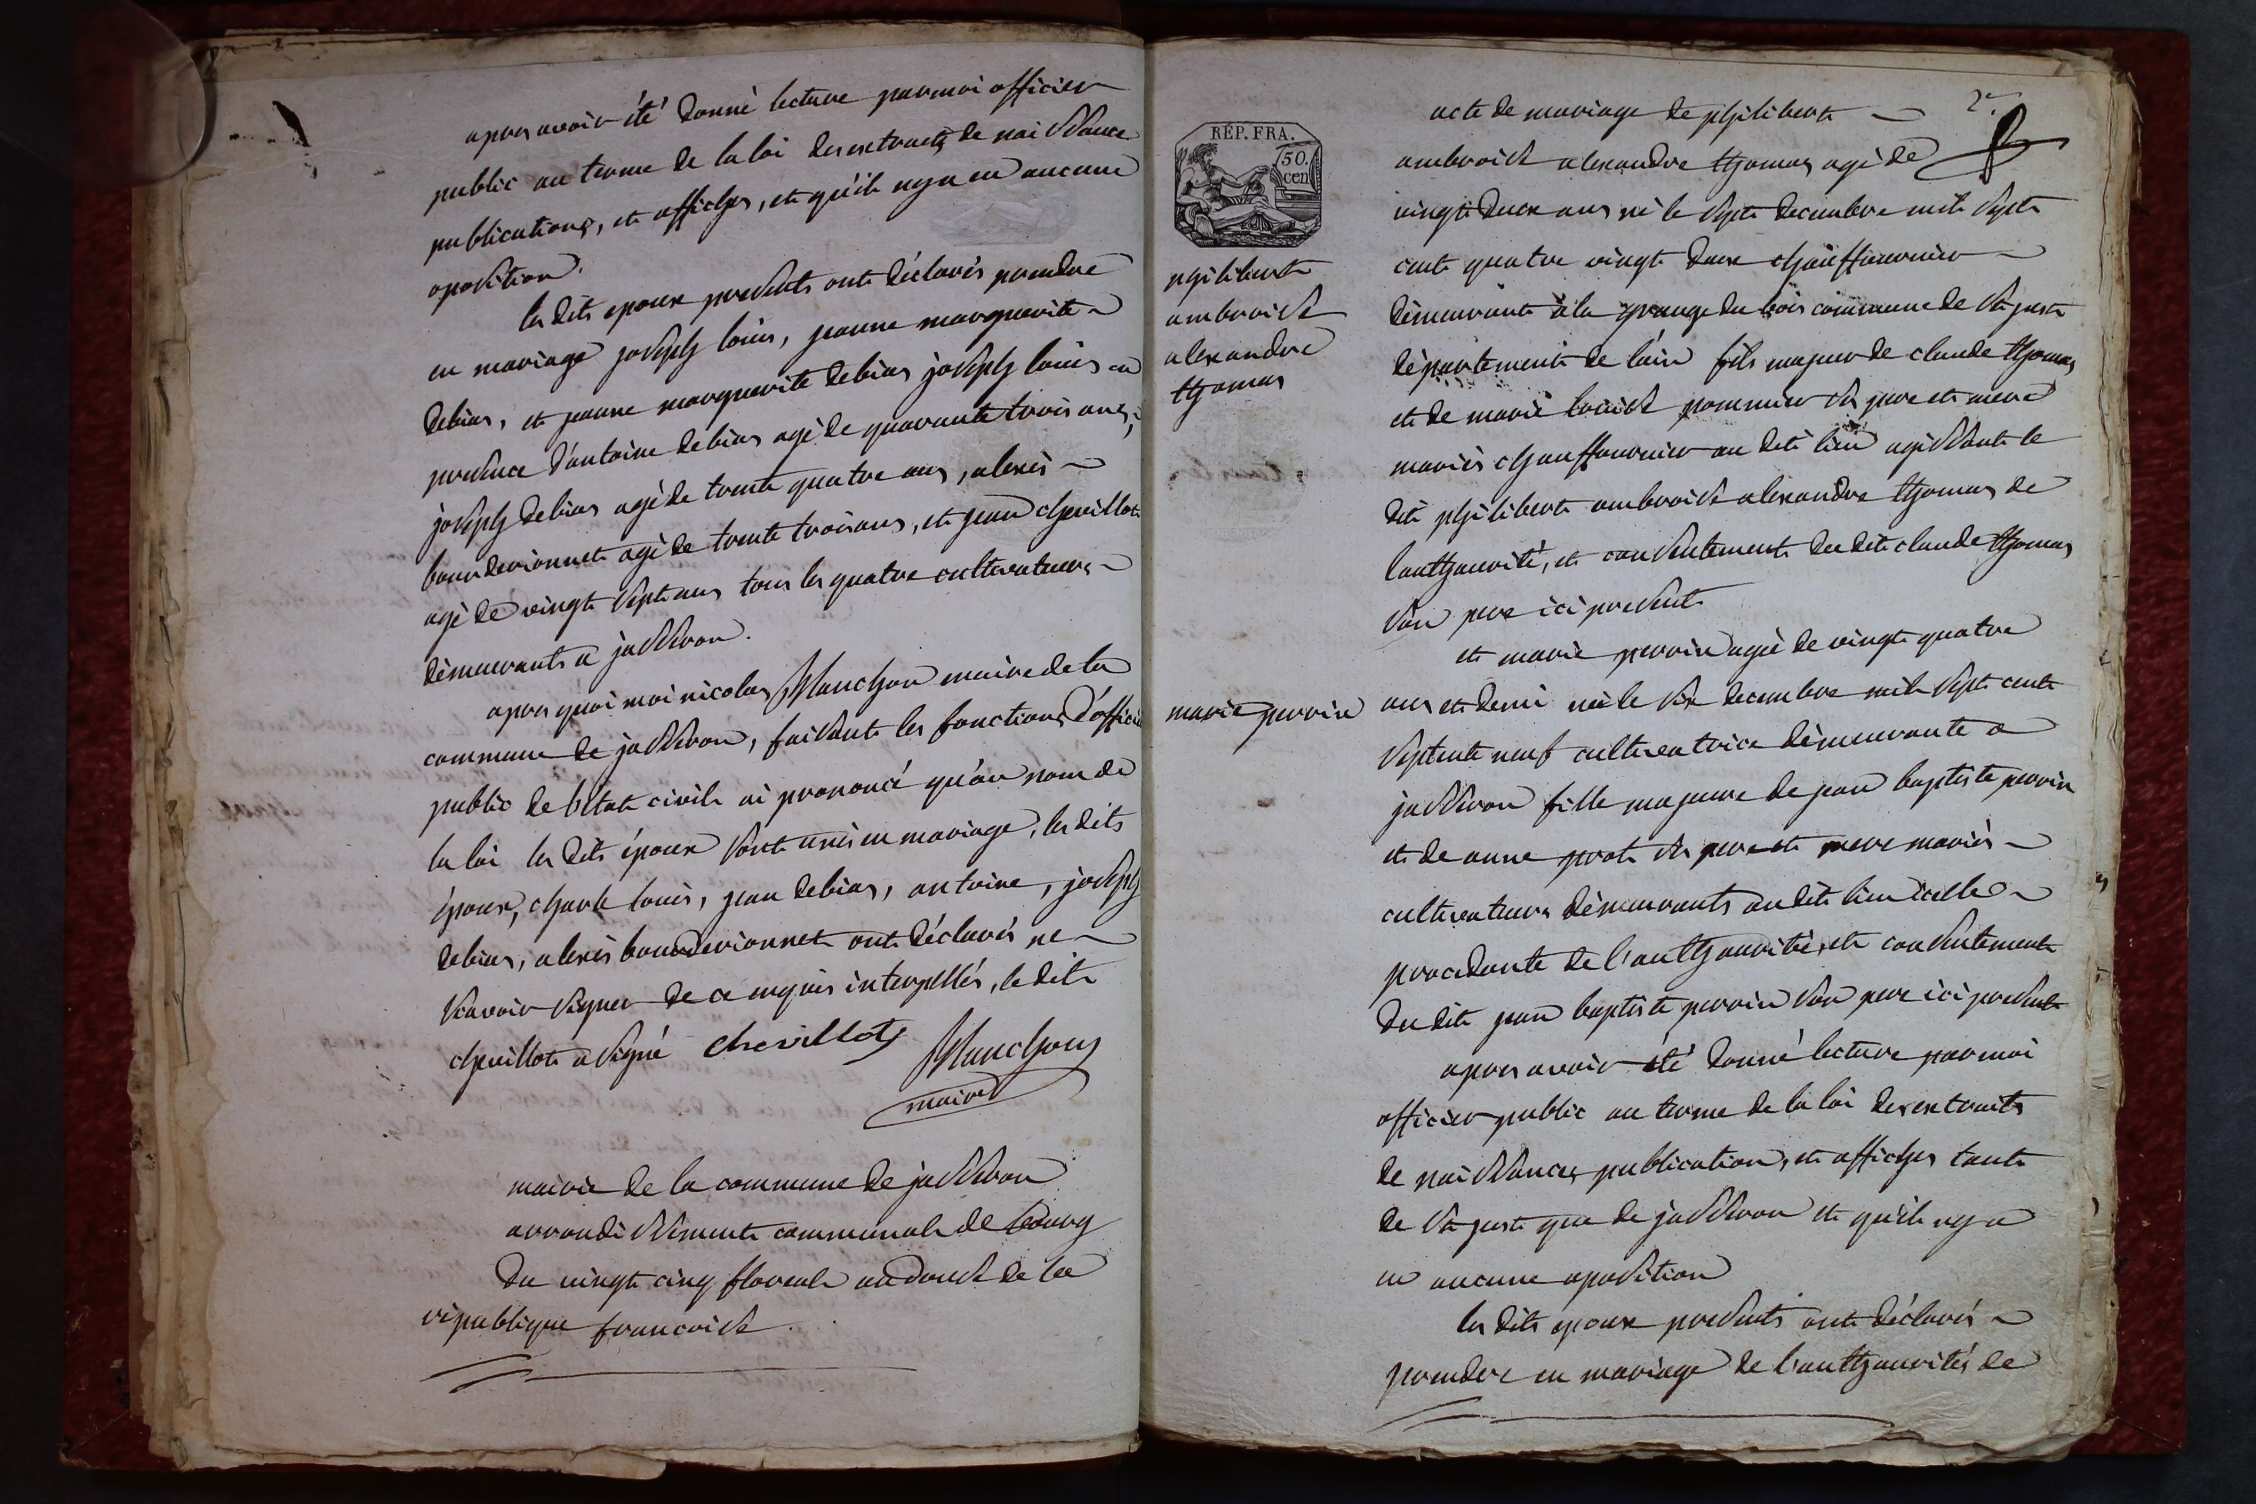 apres avoir été donné lecture par moi officier
public au terme de la loi des extraits de naissance
publications, et affiches, et qu'il n'y a eu aucune
oposition.
les dits epoux presents ont déclarés prendre
en mariage joseph louis, jeanne marguerite
debias, et jeanne marguerite debias joseph louis en
presence d'antoine debias agé de quarante trois ans,
joseph debias agé de trente quatre ans, alexis
bourderionnet agé de trente trois ans, et jean chevillot
agé de vingt sept ans tous les quatre cultivateurs
démeurants a jasseron.
apres quoi moi nicolas Blanchon maire de la
commune de jasseron, faisant les fonctions d'officier
public de l'état civil ai prononcé qu'au nom de
la loi les dits époux sont unis en mariage, les dits
époux, charle louis, jean debias, antoine, joseph
debias, alexis bourderionnet ont déclarés ne
scavoir signer de ce enquis interpellés, le dit
chevillot a signé chevillot
Blanchon
maire
mairie de la commune de jasseron
arrondissement communal de bourg
du vingt cinq floreal an douse de la
république francoise
2e
RÉP. FRA.
50.
cen
philibert
ambroise
alexandre
thomas
marie perrin
acte de mariage de philibert
ambroise alexandre thomas agé de
vingt deux ans né le sept decembre mil sept
cent quatre vingt deux chauffournier
démeurant à la grange du bois commune de st just
département de l'ain fils majeur de claude thomas
et de marie louise pommier ses pere et mere
mariés chauffournier au dit lieu agissant le
dit philibert ambroise alexandre thomas de
l'authaurité, et consentement du dit claude thomas
son pere ici present
et marie perrin agée de vingt quatre
ans et demi née le six decembre mil sept cent
septente neuf cultivatrice démeurante a
jasseron fille majeure de jean baptiste perrin
et de anne prost ses pere et mere mariés
cultivateurs démeurants au dit lieu icelle
procedante de l'authaurité, et consentement
du dit jean baptiste perrin son pere ici present
apres avoir été donné lecture par moi
officier public au terme de la loi des extraits
de naissances, publication, et affiches tant
de st just que de jasseron et qu'il n'y a
eu aucune oposition
les dits epoux presents ont déclarés
prendre en mariage de l'authaurités de